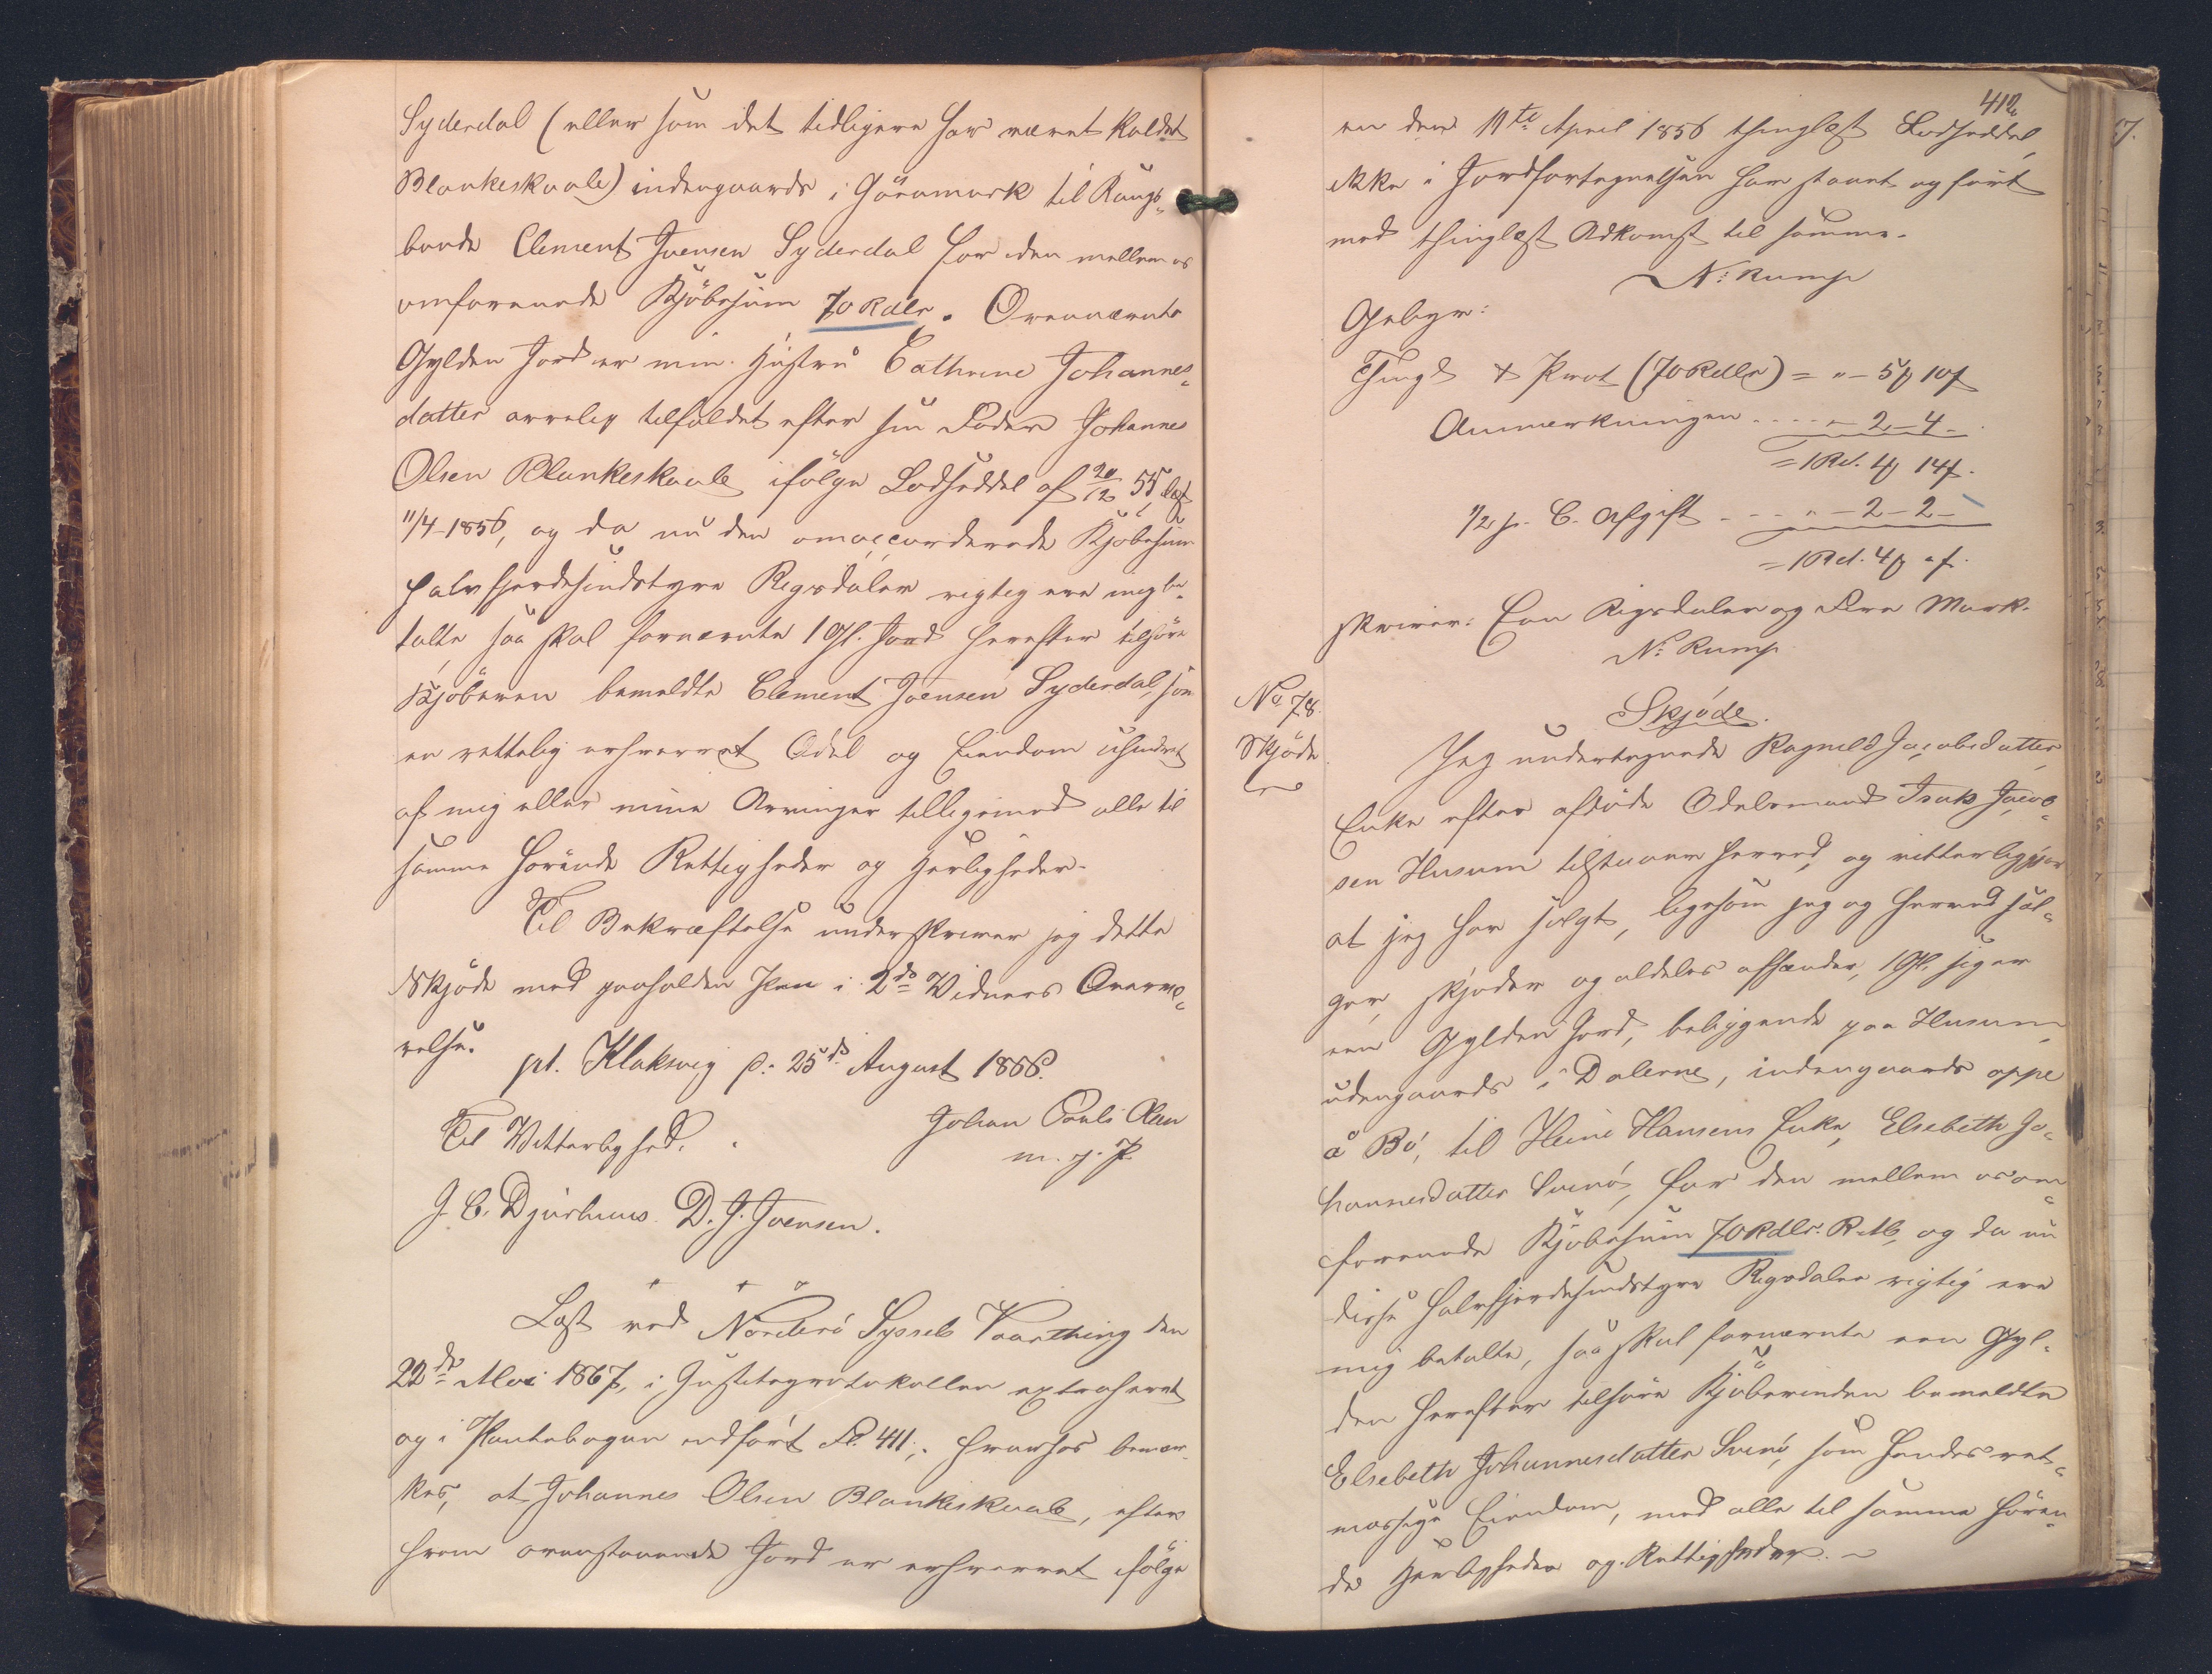 Syderdal (eller som det tidligere har været kaldet
Blankeskaale) indengaards i Göramark til Kongs-
bonde Clement Joensen Syderdal for den mellem os
omforenede Kjöbesum 70 Rdlr. Ovennævnte
Gylden Jord er min Hustru Cathrine Johannes-
datter arvelig tilfaldet efter sin Fader Johannes
Olsen Blankeskaale ifölge Lodseddel af 20/12 55, læst
11/4 1856, og da nu den omaccorderede Kjöbesum
halvfjerdesindstyve Rigsdaler rigtig ere mig be-
talte saa skal fornævnte 1 Gl. Jord herefter tilhöre
Kjöberen bemeldte Clement Joensen Syderdal, som
en rettelig erhvervet Odel og Eiendom uhindret
af mig eller mine Arvinger tilligemed alle til
samme hörende Rettigheder og Herligheder.
Til Bekræftelse underskriver jeg dette
Skjöde med paaholden Pen i 2de Vidners Overvæ-
relse.
pt. Klaksvig d: 25de August 1866.
Til Vitterlighed.
Johan Pauli Olsen
m. f. P.
J. C. Djurhuus D. J. Joensen.
Læst ved Norderö Syssels Vaarthing den
22de Mai 1867, i Justitsprotokollen extraheret
og i Pantebogen indfört Fol. 411; hvorhos bemær-
kes, at Johannes Olsen Blankeskaale, efter
hvem ovenstaaende Jord er erhvervet ifölge
412
en den 11te April 1856 thinglæst Lodseddel,
ikke i Jordfortegnelsen har staaet opfört
med thinglæst Adkomst til samme.
N: Rump
Gebyr:
Thingl & Prot (70 Rdlr) = " - 5 ꝑ 10 f
Anmærkningen . . . . " - 2 - 4 -
= 1 Rd. 4 ꝑ 14 f.
1/2 p. C. Afgift - . . . " - 2 - 2 -
= 1 Rd. 4 ꝑ " f.
skriver: Een Rigsdaler og Fire Mark.
N: Rump
No 78.
Skjöde
Skjöde.
Jeg undertegnede Ragnild Jacobsdatter,
Enke efter afdöde Odelsmand Isak Jacob-
sen Husum tilstaaer herved, og vitterliggjör
at jeg har solgt, ligesom jeg og herved sæl-
ger, skjöder og aldeles afhænder, 1 Gl. siger
een Gylden Jord, beliggende paa Husum,
udengaards i Dalerne, indengaards oppe
å Bö, til Heine Hansens Enke, Elsebeth Jo-
hannesdatter Svinö, for den mellem os om-
forenede Kjöbesum 70 Rdlr. R. M., og da nu
disse halvfjerdesindstyve Rigsdaler rigtig ere
mig betalte, saa skal fornævnte een Gyl-
den herefter tilhöre Kjöberinden bemeldte
Elsebeth Johannesdatter Svinö, som hendes ret-
mæssige Eiendom, med alle til samme hören-
de Herligheder og Rettigheder.